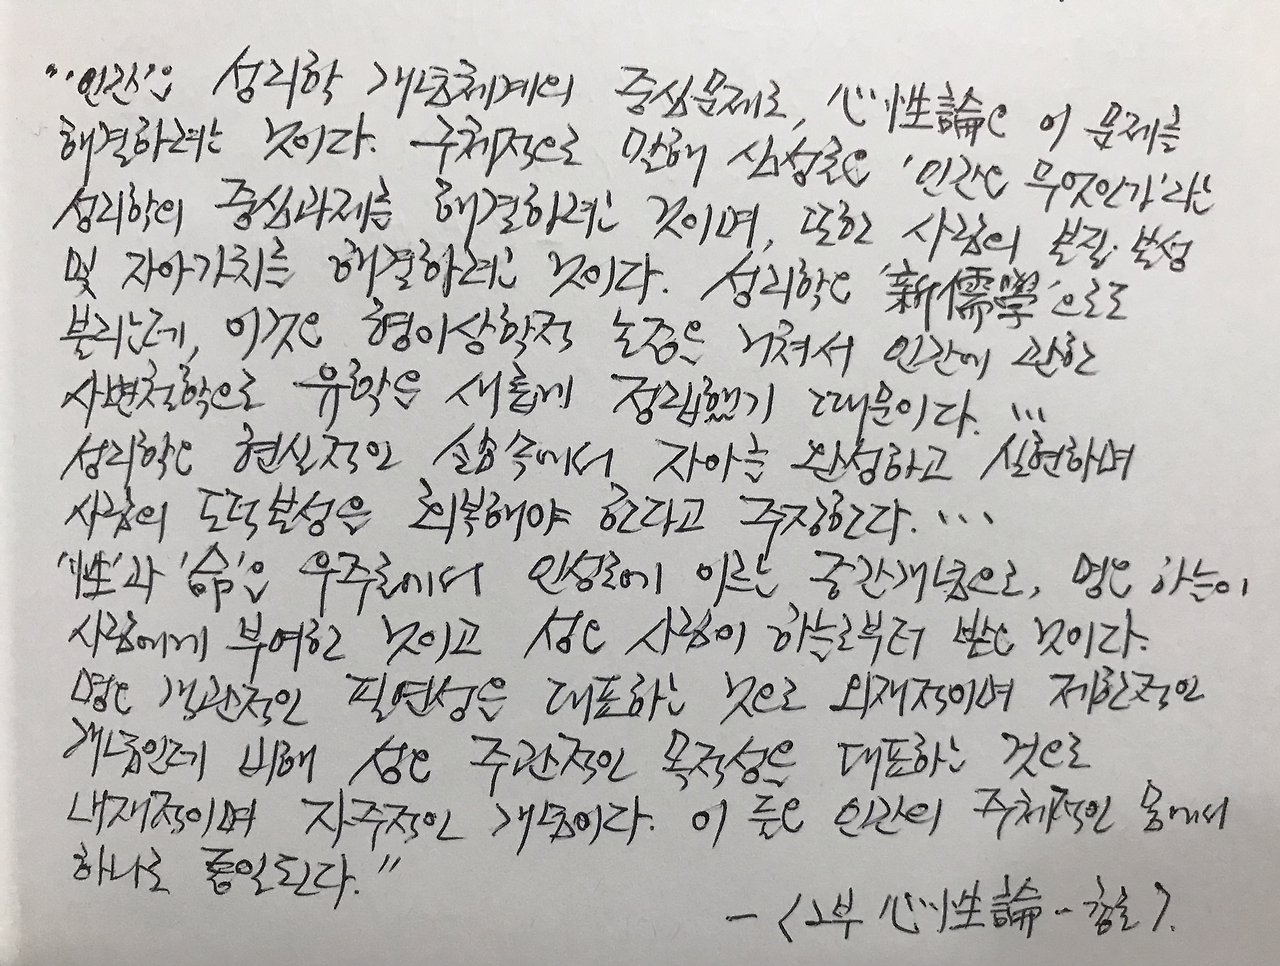 "'인간'은 성리학 개념체계의 중심문제로, 心性論은 이 문제를
해결하려는 것이다. 구체적으로 말해 심성론은 '인간은 무엇인가'라는
성리학의 중심과제를 해결하려는 것이며, 또한 사람의 본질·본성
및 자아가치를 해결하려는 것이다. 성리학은 '新儒學'으로도
불리는데, 이것은 형이상학적 논증을 거쳐서 인간에 관한
사변철학으로 유학을 새롭게 정립했기 때문이다. ...
성리학은 현실적인 삶 속에서 자아를 완성하고 실현하며
사람의 도덕본성을 회복해야 한다고 주장한다. ...
'性'과 '命'은 우주론에서 인성론에 이르는 중간개념으로, 명은 하늘이
사람에게 부여한 것이고 성은 사람이 하늘로부터 받은 것이다.
명은 객관적인 필연성을 대표하는 것으로 외재적이며 제한적인
개념인데 비해 성은 주관적인 목적성을 대표하는 것으로
내재적이며 자주적인 개념이다. 이 둘은 인간의 주체적인 몸에서
하나로 통일된다."
- <2부 心性論 - 총론>.